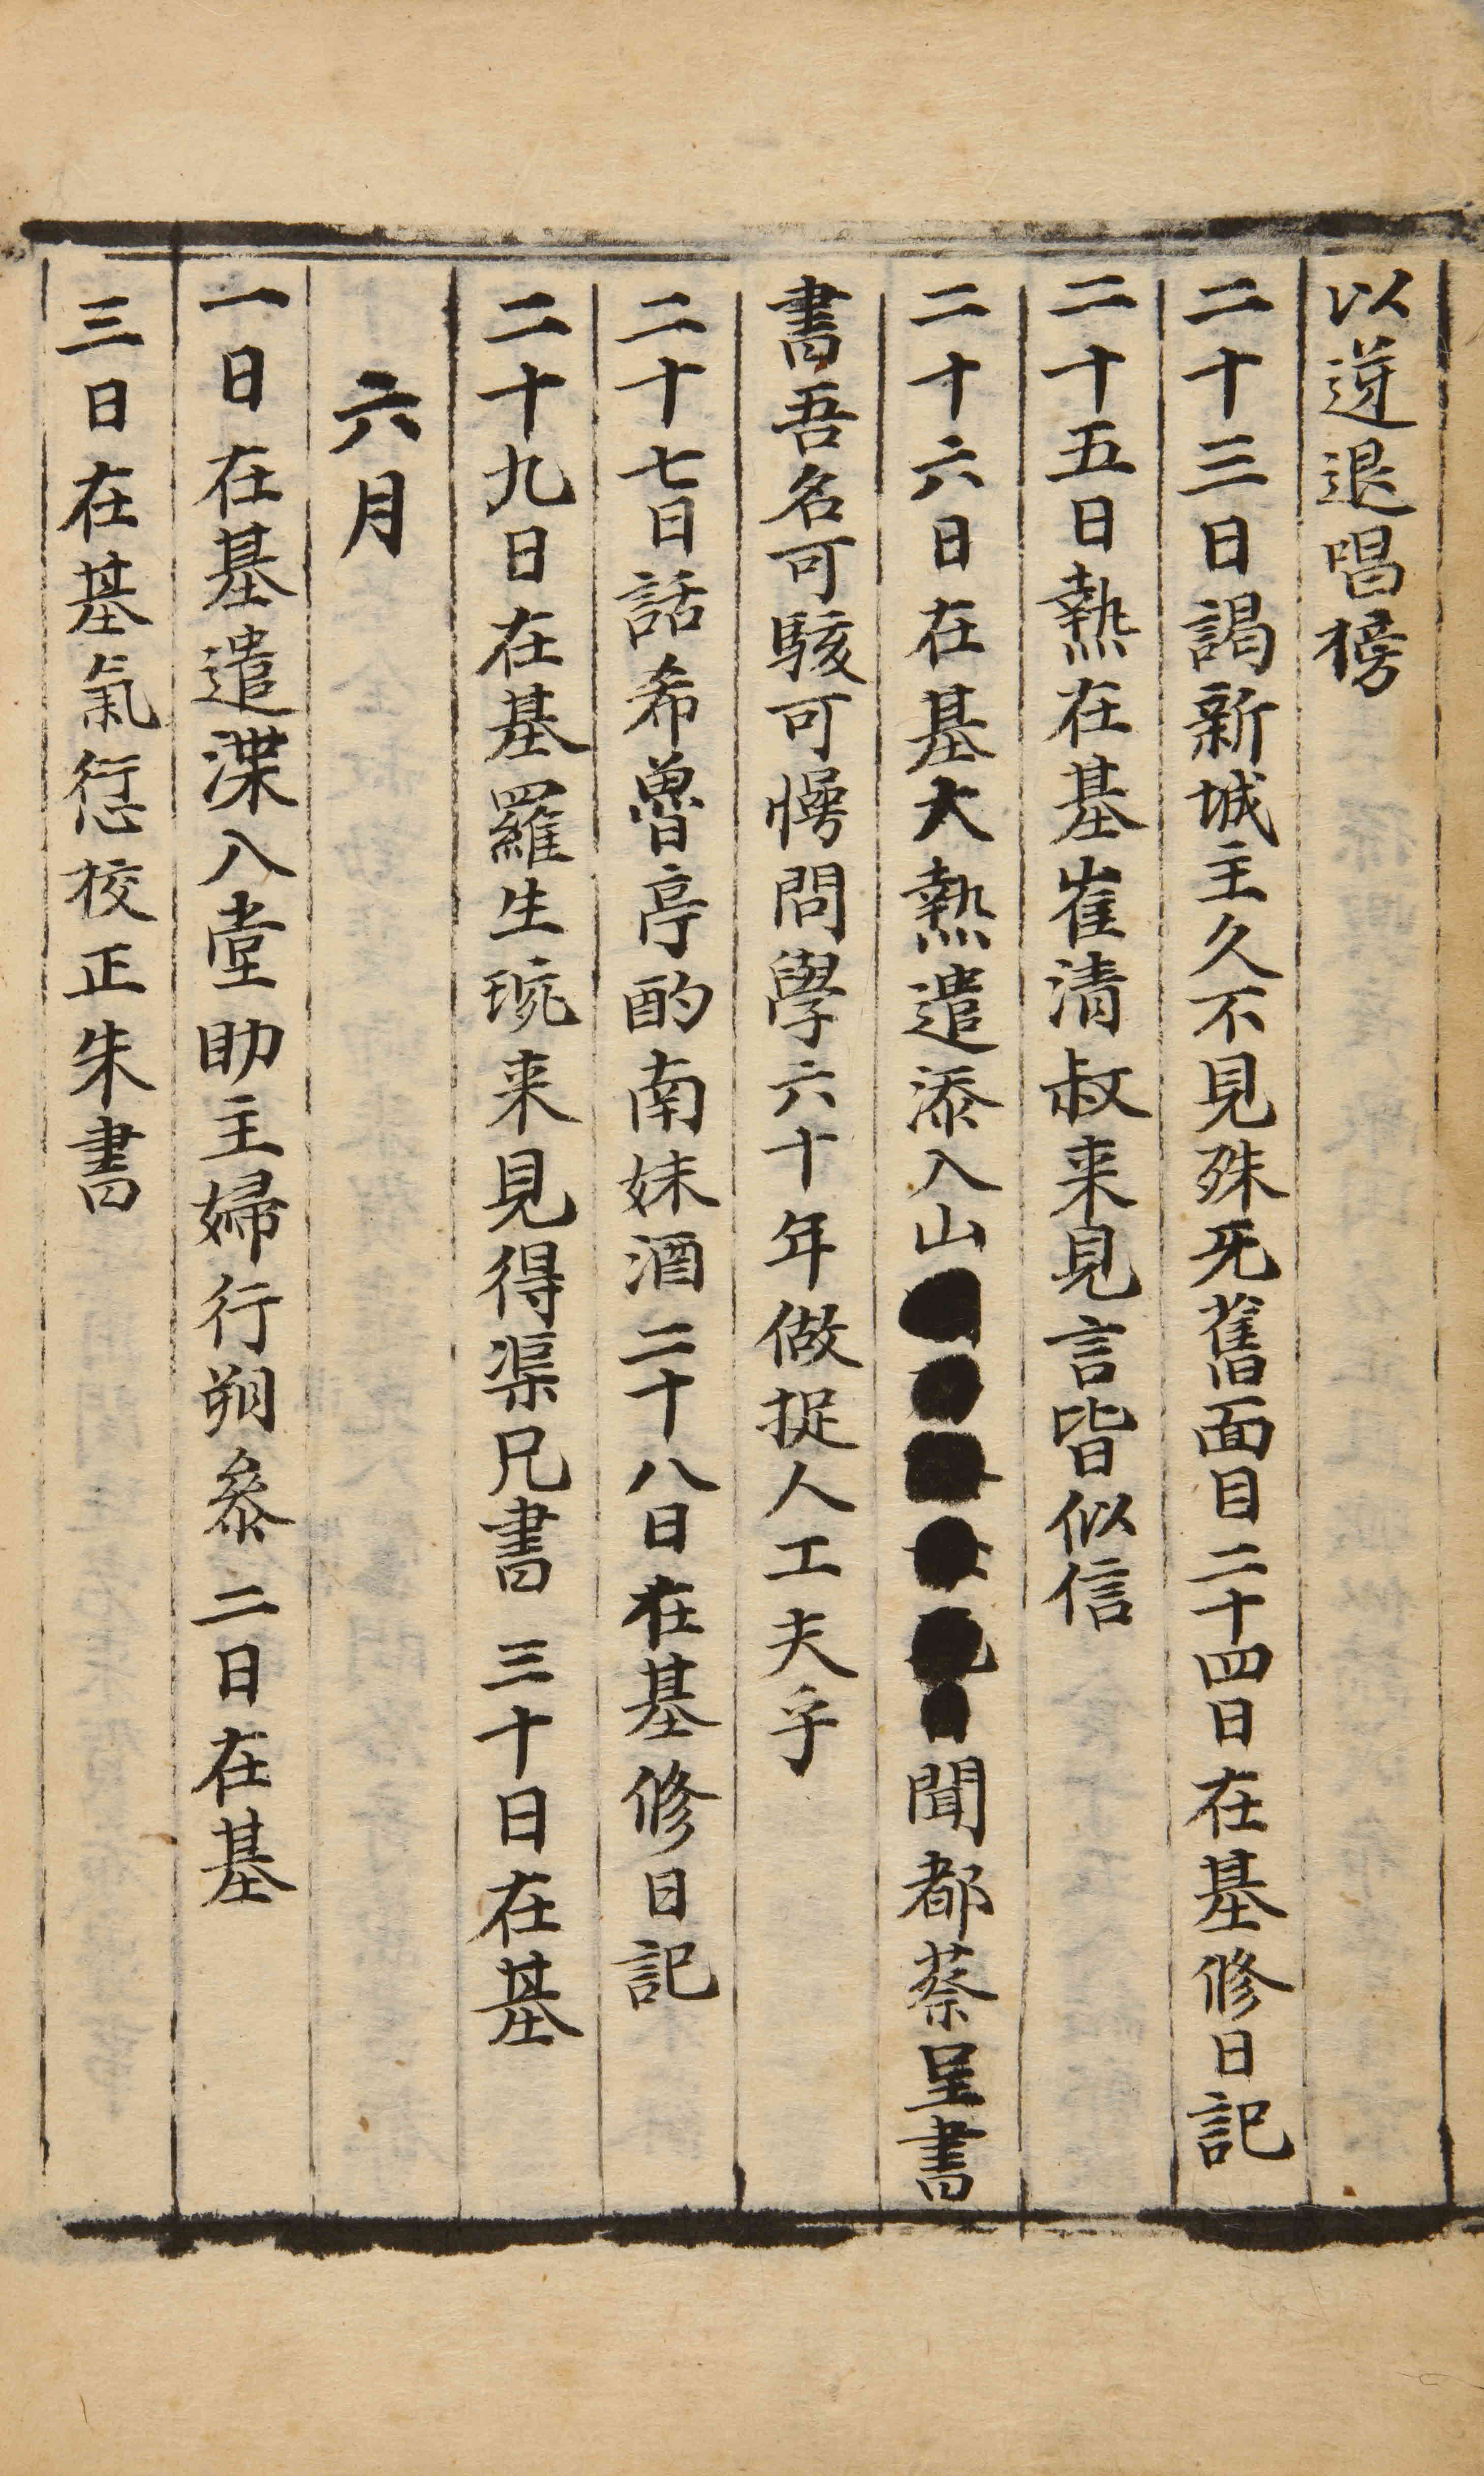 以逆退唱榜
二十三日謁新城主久不見殊死舊面目二十四日在基修日記
二十五日熱在基崔清叔来見言皆似信
二十六日在基大熱遣添入山聞都蔡呈書
書吾名可駭可愕問學六十年做捉人工夫乎
二十七日話希魯亭酌南妹酒二十八日在基修日記
二十九日在基羅生琬来見得渠兄書三十日在基
六月
一日在基遣渫入堂助主婦行朔叅二日在基
三日在基氣愆校正朱書